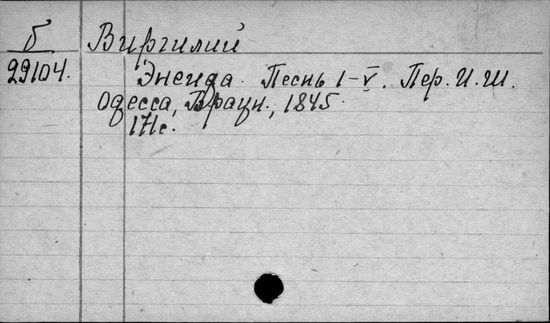 б Виргилий
29104. Энеида. Песнь I-V. Пер. И. Ш.
Одесса, Браун, 1845.
171с.